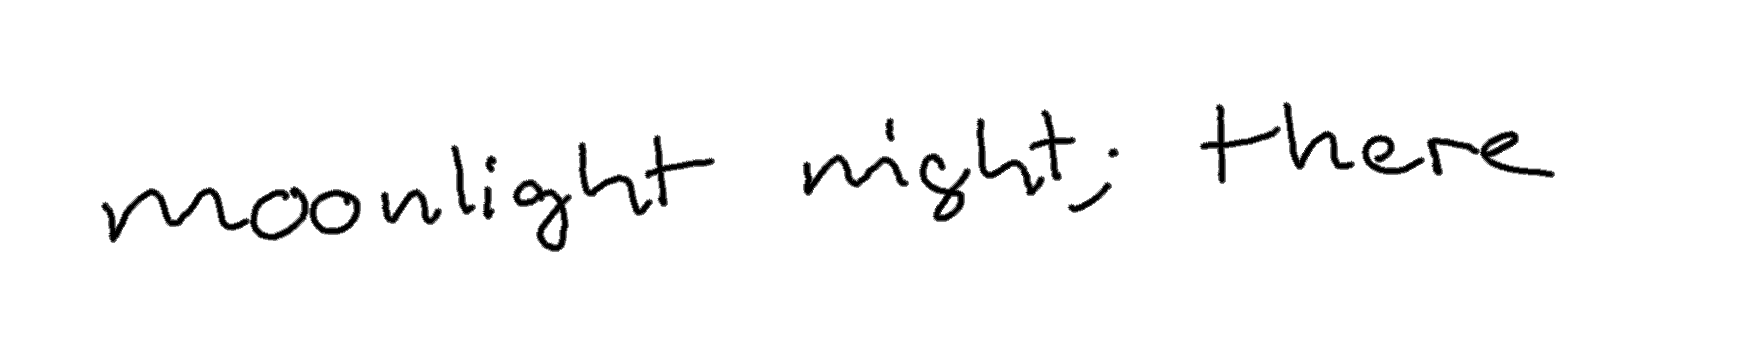 moonlight night; there